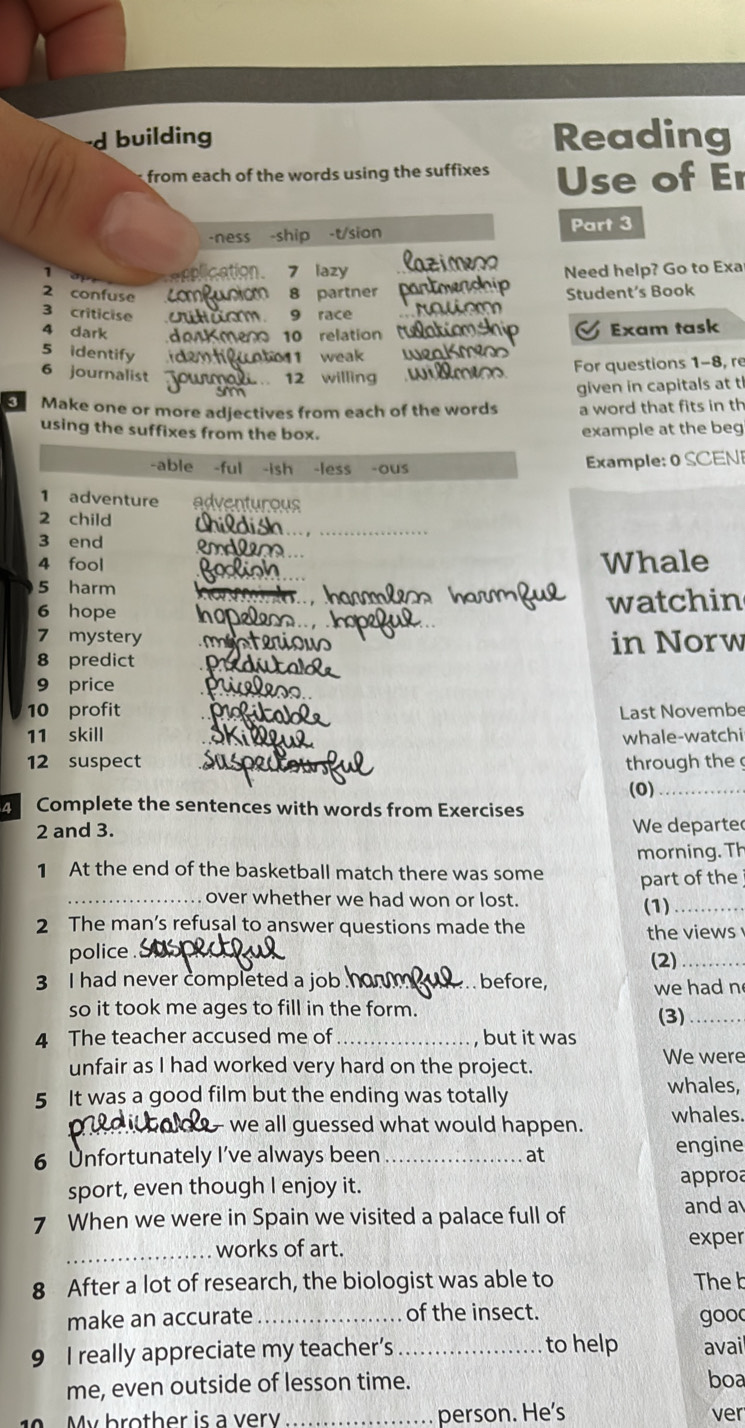 d building
from each of the words using the suffixes
-ness -ship -t/sion
1 application 7 lazy laziness
2 confuse confusion 8 partner partnership
3 criticise criticism 9 race racism
4 dark darkness 10 relation relationship
5 identify identification 11 weak weakness
6 journalist journalism 12 willing willness
3 Make one or more adjectives from each of the words
using the suffixes from the box.
-able -ful -ish -less -ous
1 adventure adventurous
2 child childish
3 end endless
4 fool foolish
5 harm harmless harmful
6 hope hopeless, hopeful
7 mystery mysterious
8 predict predictable
9 price priceless
10 profit profitable
11 skill skillful
12 suspect suspectful
4 Complete the sentences with words from Exercises
2 and 3.
1 At the end of the basketball match there was some
over whether we had won or lost.
2 The man's refusal to answer questions made the
police suspectful
3 I had never completed a job harmful before,
so it took me ages to fill in the form.
4 The teacher accused me of , but it was
unfair as I had worked very hard on the project.
5 It was a good film but the ending was totally
predictable – we all guessed what would happen.
6 Unfortunately I've always been at
sport, even though I enjoy it.
7 When we were in Spain we visited a palace full of
works of art.
8 After a lot of research, the biologist was able to
make an accurate of the insect.
9 I really appreciate my teacher's to help
me, even outside of lesson time.
10 My brother is a very person. He's
Reading
Use of En
Part 3
Need help? Go to Exa
Student's Book
Exam task
For questions 1–8, re
given in capitals at t
a word that fits in th
example at the beg
Example: 0 SCENE
Whale
watchin
in Norw
Last Novembe
whale-watchi
through the
(0)
We departed
morning. Th
part of the
(1)
the views
(2)
we had ne
(3)
We were
whales,
whales.
engine
approa
and av
exper
The b
good
avail
boa
ver